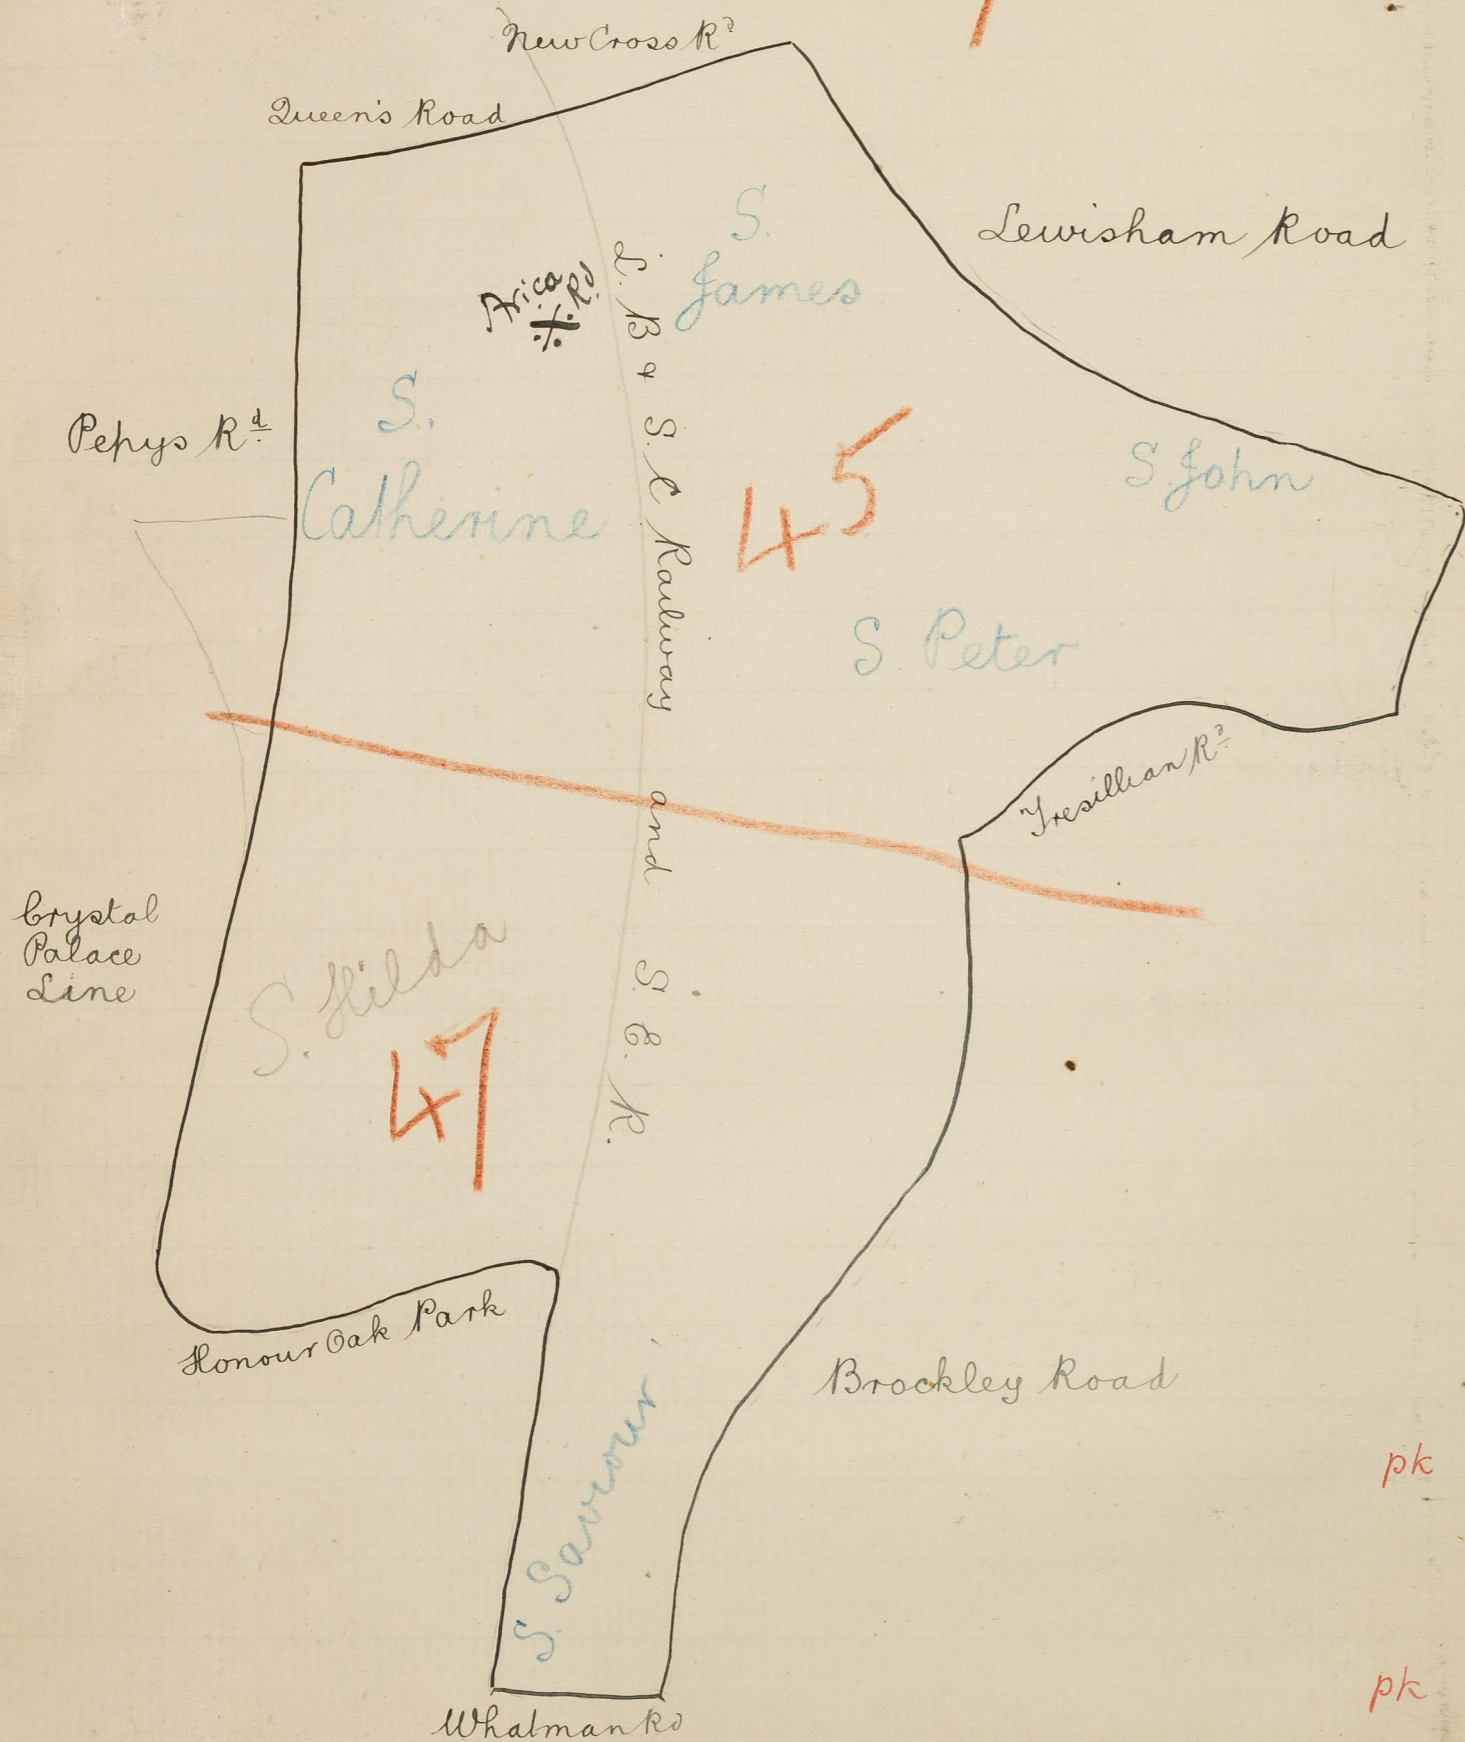 New Cross Rd
Queen's Road
Lewisham Road
S.
James
Arica Rd
L. B & S. C Railway and S. E. R.
S.
Catherine
Pepys Rd
45
S. John
S. Peter
Tresillian Rd
Crystal
Palace
Line
S. Hilda
47
Honour Oak Park
Brockley Road
pk
S. Saviour
pk
Whatman Rd